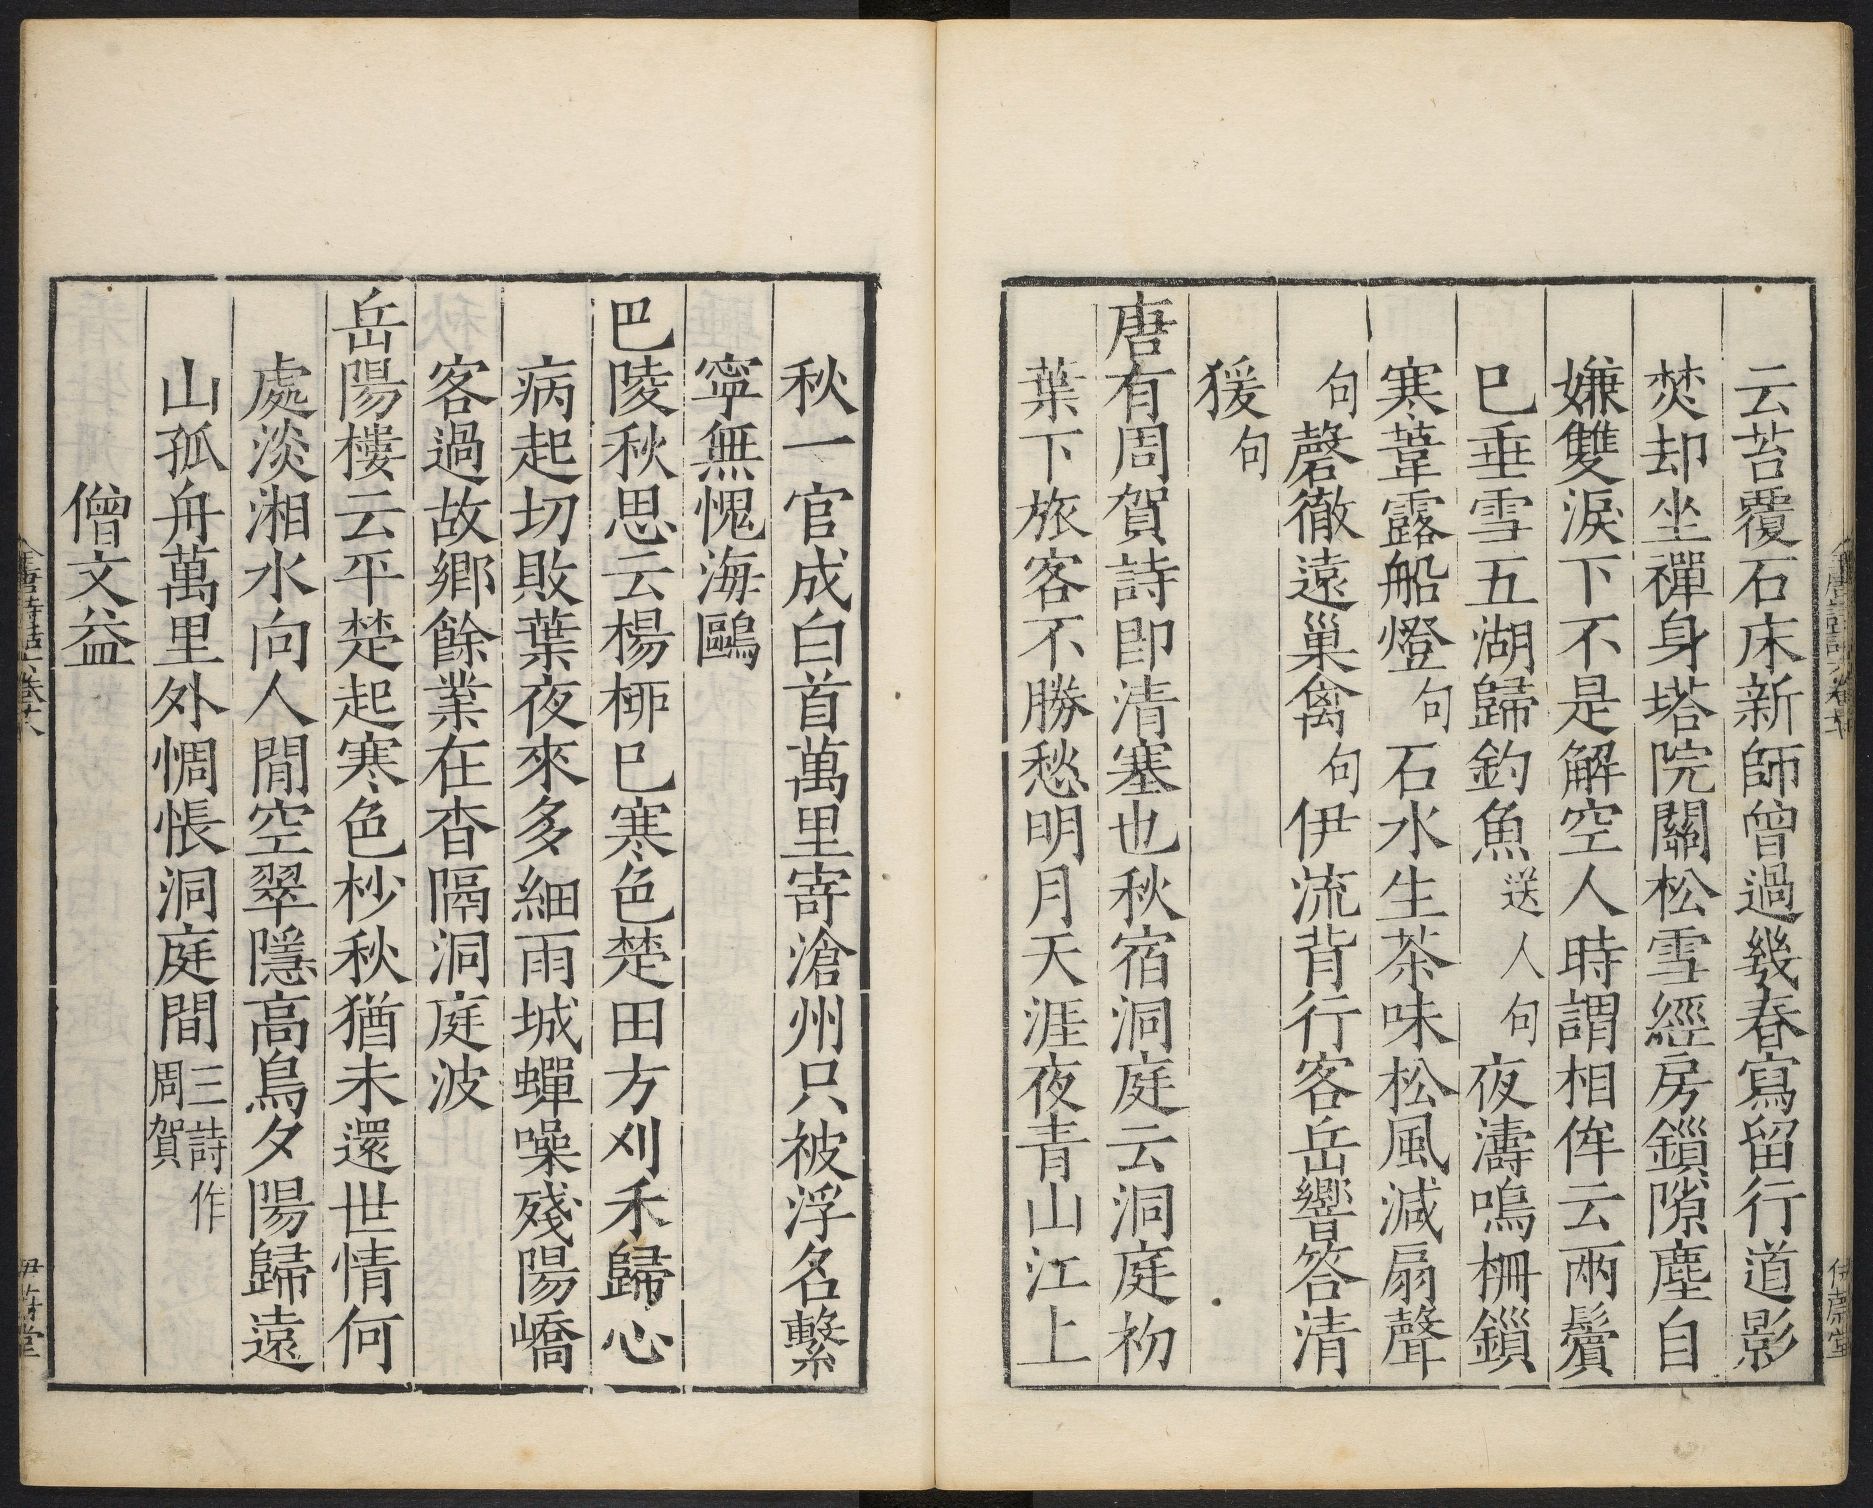 云苔覆石床新師曾過幾春寫留行道影
焚却坐禪身塔院關松雪經房鎻隙塵自
嫌雙淚下不是解空人時謂相侔云兩鬢
巳垂雪五湖歸釣魚送人句夜濤鳴柵鎻
寒葦露船燈句石水生茶味松風減扇聲
句磬徹遠巢禽句伊流背行客岳響答清
猨句
唐有周賀詩即清塞也秋宿洞庭云洞庭初
葉下旅客不勝愁明月天涯夜青山江上
秋一官成白首萬里寄滄州只被浮名繫
寧無愧海鷗
巴陵秋思云楊栁巳寒色楚田方刈禾歸心
病起切敗葉夜來多細雨城蟬噪殘陽嶠
客過故鄉餘業在杳隔洞庭波
岳陽樓云平楚起寒色杪秋猶未還世情何
處淡湘水向人閒空翠隱高鳥夕陽歸遠
山孤舟萬里外惆悵洞庭間三詩周賀作
僧文益